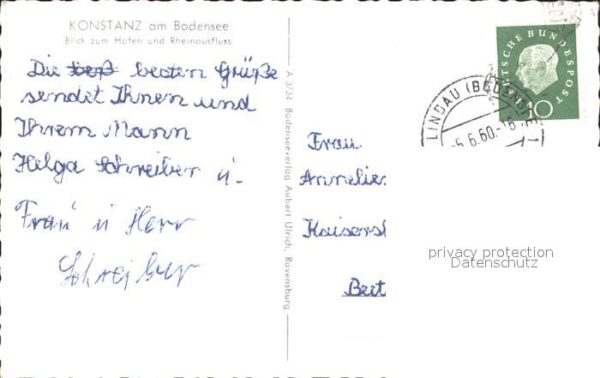 KONSTANZ am Bodensee
Blick zum Hafen und Rheinausfluss
Die besten Grüße
sendet Ihnen und
Ihrem Mann
Helga Schreiber u.
Frau u Herr
Schreiber
A 3/44 Bodenseeverlag Aubert Ulrich, Ravensburg
DEUTSCHE BUNDESPOST
10
LINDAU (BODENSEE) 1
-5.6.60.-16
Frau
Annelie
Kaisers
privacy protection
Datenschutz